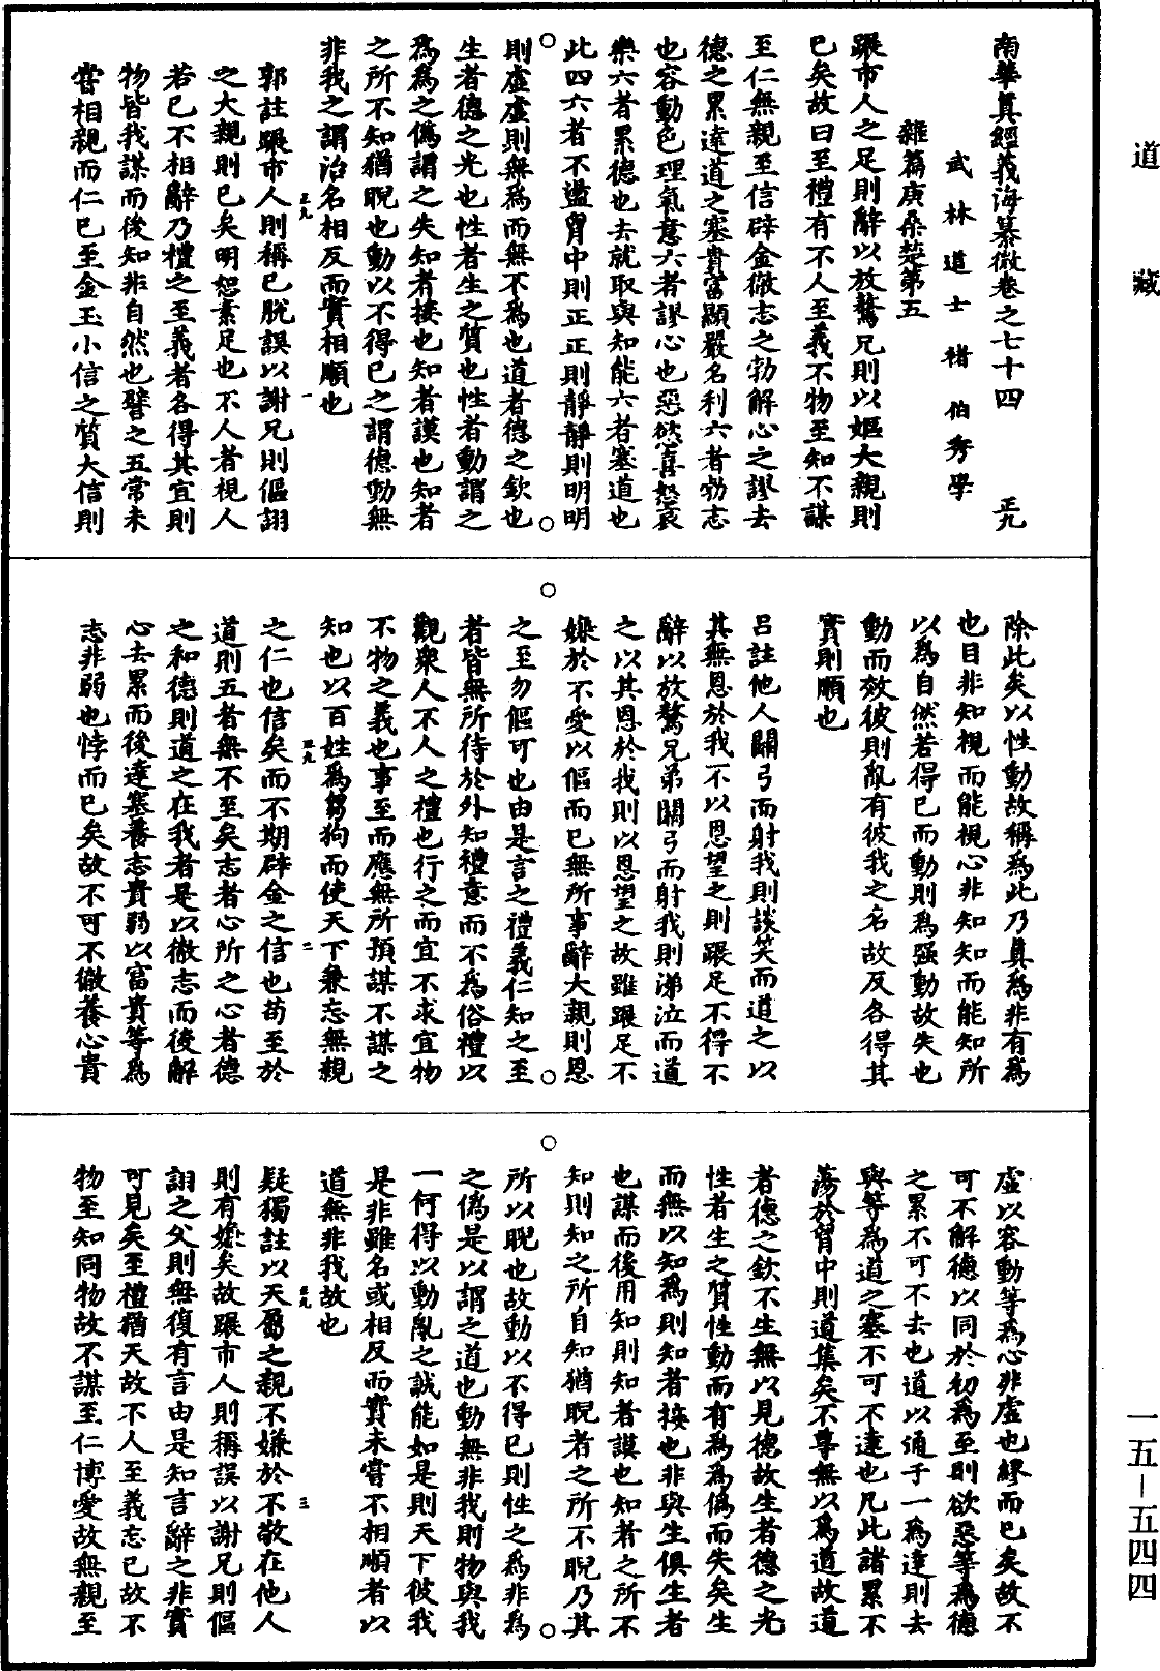 道藏
南華真經義海纂微卷之七十四 正九
武林道士褚伯秀學
雜篇庚桑楚第五
蹍市人之足則辭以放驁兄則以嫗大親則
已矣故曰至禮有不人至義不物至知不謀
至仁無親至信辟金徹志之勃解心之謬去
德之累達道之塞貴富顯嚴名利六者勃志
也容動色理氣意六者謬心也惡欲喜怒哀
樂六者累德也去就取與知能六者塞道也
此四六者不盪胷中則正正則靜靜則明明
則虛虛則無為而無不為也道者德之欽也
生者德之光也性者生之質也性者動謂之
為為之偽謂之失知者接也知者謨也知者
之所不知猶睨也動以不得已之謂德動無
非我之謂治名相反而實相順也
郭註蹍市人則稱已脫誤以謝兄則傴詡
之大親則已矣明恕素足也不人者視人
若已不相辭乃禮之至義者各得其宜則
物皆我謀而後知非自然也譬之五常未
嘗相親而仁已至金玉小信之質大信則
正九 一
除此矣以性動故稱為此乃真為非有為
也目非知視而能視心非知知而能知所
以為自然若得已而動則為强動故失也
動而效彼則亂有彼我之名故反各得其
實則順也
呂註他人關弓而射我則談笑而道之以
其無恩於我不以恩望之則蹍足不得不
辭以放驁兄弟關弓而射我則涕泣而道
之以其恩於我則以恩望之故雖蹍足不
嫌於不愛以傴而已無所事辭大親則恩
之至勿傴可也由是言之禮義仁知之至
者皆無所待於外知禮意而不為俗禮以
觀衆人不人之禮也行之而宜不求宜物
不物之義也事至而應無所預謀不謀之
知也以百姓為芻狗而使天下兼忘無親
之仁也信矣而不期辟金之信也苟至於
道則五者無不至矣志者心所之心者德
之和德則道之在我者是以徹志而後解
心去累而後達塞養志貴弱以富貴等為
志非弱也悖而已矣故不可不徹養心貴
正九 二
虛以容動等為心非虛也繆而已矣故不
可不解德以同於初為至則欲惡等為德
之累不可不去也道以通于一為達則去
與等為道之塞不可不達也凡此諸累不
蕩於胷中則道集矣不尊無以為道故道
者德之欽不生無以見德故生者德之光
性者生之質性動而有為為偽而失矣生
而無以知為則知者接也非與生俱生者
也謀而後用知則知者謨也知者之所不
知則知之所自知猶睨者之所不睨乃其
所以睨也故動以不得已則性之為非為
之偽是以謂之道也動無非我則物與我
一何得以動亂之誠能如是則天下彼我
是非雖名或相反而實未嘗不相順者以
道無非我故也
疑獨註以天屬之親不嫌於不敬在他人
則有嫌矣故蹍市人則稱誤以謝兄則傴
詡之父則無復有言由是知言辭之非實
可見矣至禮猶天故不人至義忘已故不
物至知同物故不謀至仁博愛故無親至
正九 三
一五—五四四